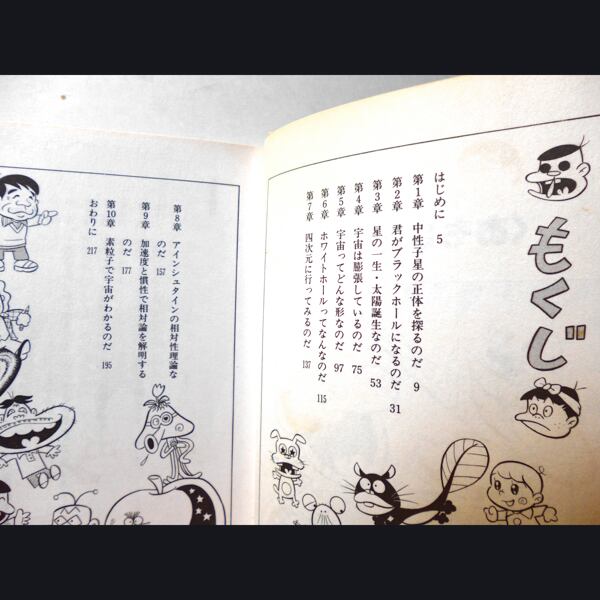 もくじ
はじめに 5
第1章 中性子星の正体を探るのだ 9
第2章 君がブラックホールになるのだ 31
第3章 星の一生・太陽誕生なのだ 53
第4章 宇宙は膨張しているのだ 75
第5章 宇宙ってどんな形なのだ 97
第6章 ホワイトホールってなんなのだ 115
第7章 四次元に行ってみるのだ 137
第8章 アインシュタインの相対性理論な
のだ 157
第9章 加速度と慣性で相対論を解明する
のだ 177
第10章 素粒子で宇宙がわかるのだ 195
おわりに 217